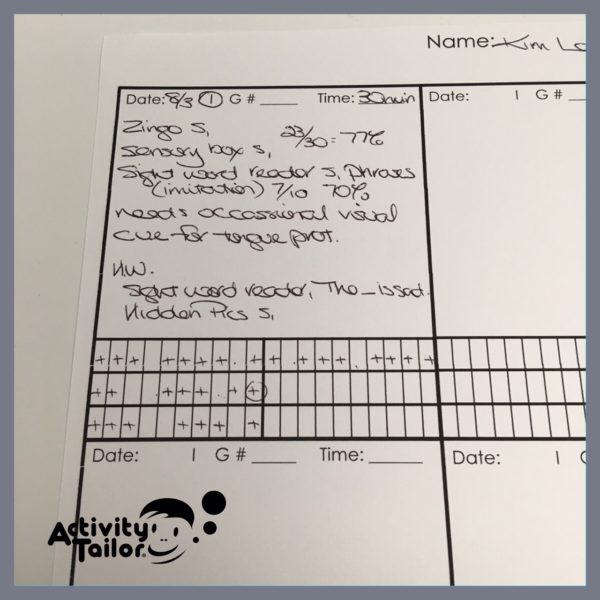 Name: Kim Lo
Date: 8/3 I G # ___ Time: 30min
Date: I G #
Zingo s,
23/30 = 77%
Sensory box s,
Sight word reader s, phrases
(imitation) 7/10 70%
needs occassional visual
cue for tongue prot.
HW.
Sight word reader, The _ is sad.
Hidden Pics s,
+ + + + + + . + + . + + + . + + + +
+ + + + + . + +
+ + + + + + +
Date: I G # ____ Time: _____
Date: I G
Activity
Tailor®